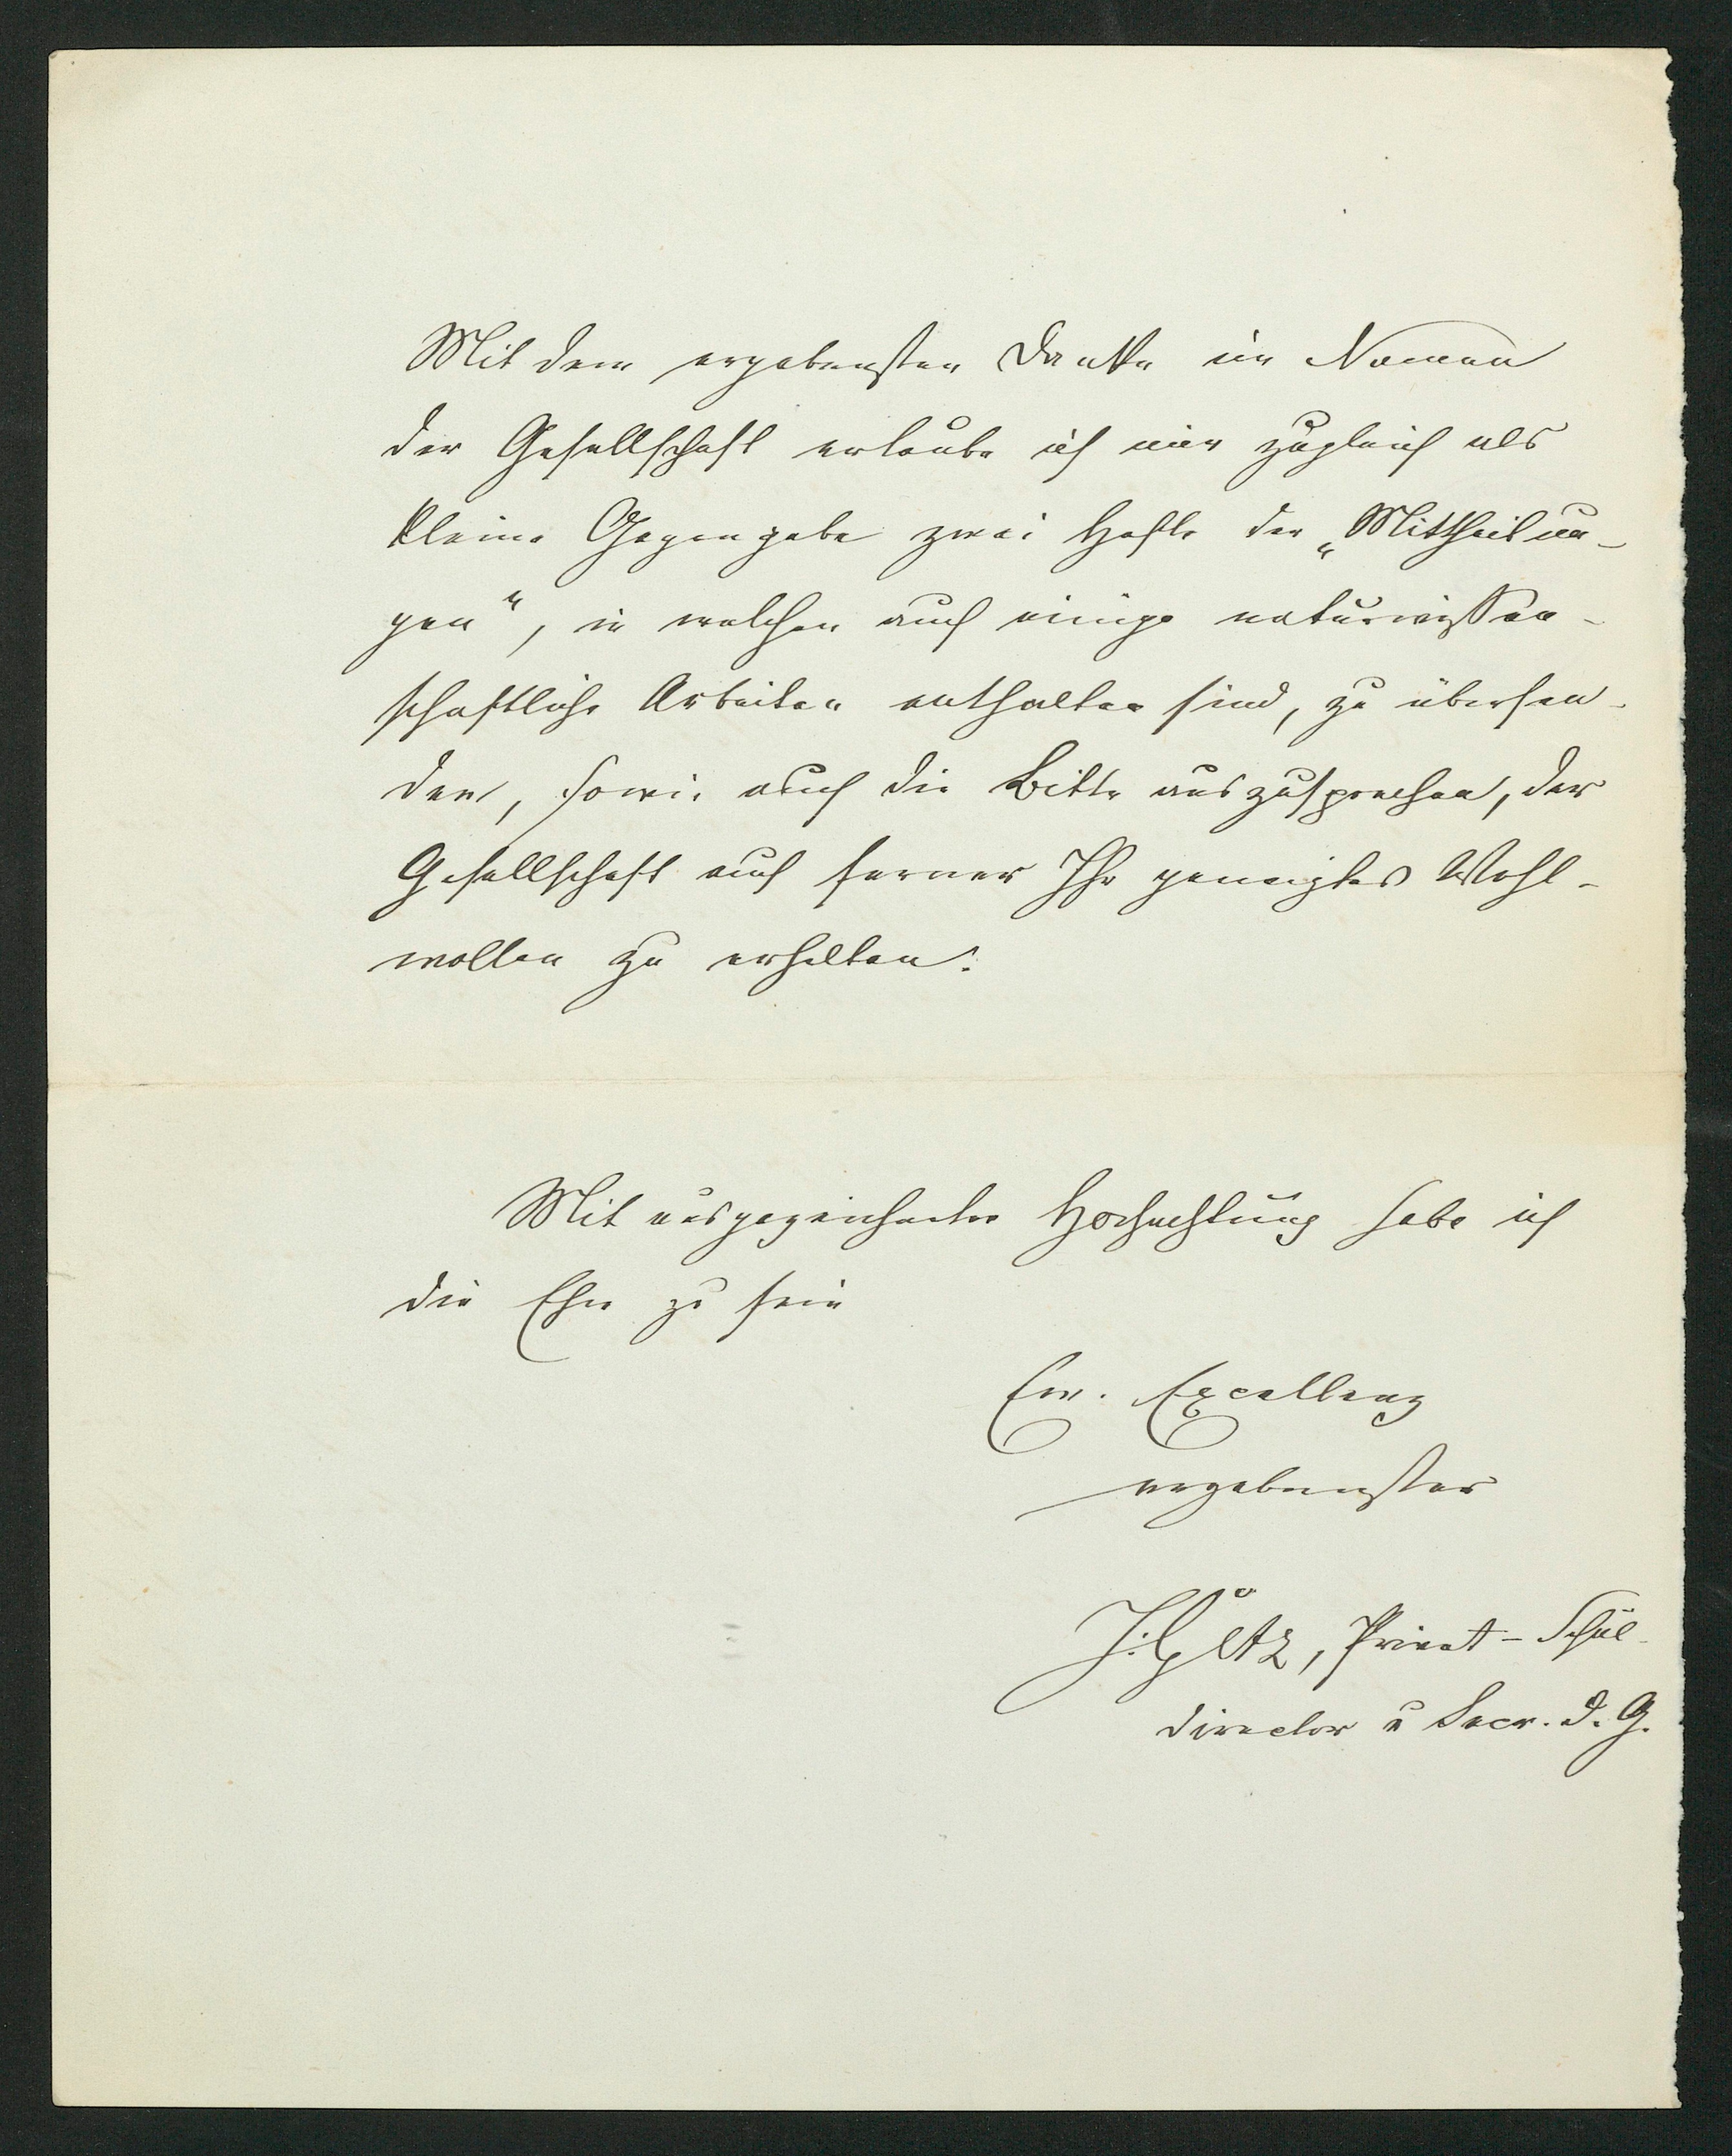 Mit dem ergebensten Danke im Namen
der Gesellschaft erlaube ich mir zugleich als
kleine Gegengabe zwei Hefte der „Mittheilun-
gen“, in welchen auch einige naturwissen-
schaftliche Arbeiten enthalten sind, zu übersen-
den, sowie auch die Bitte auszusprechen, der
Gesellschaft auch ferner Ihr geneigtes Wohl-
wollen zu erhalten.
Mit ausgezeichneter Hochachtung habe ich
die Ehre zu sein
Ew. Excellenz
ergebenster
Privat-Schul-
director u Secr. d. G.